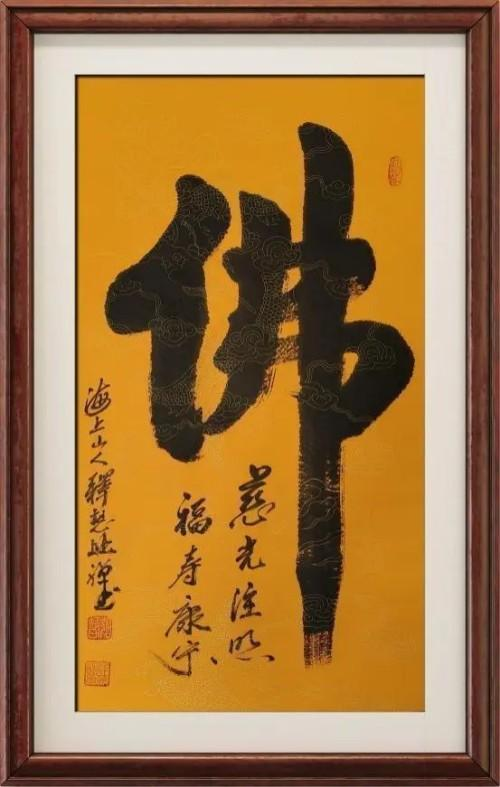 佛
慈光注照
福寿康宁
海上山人釋慧禪书